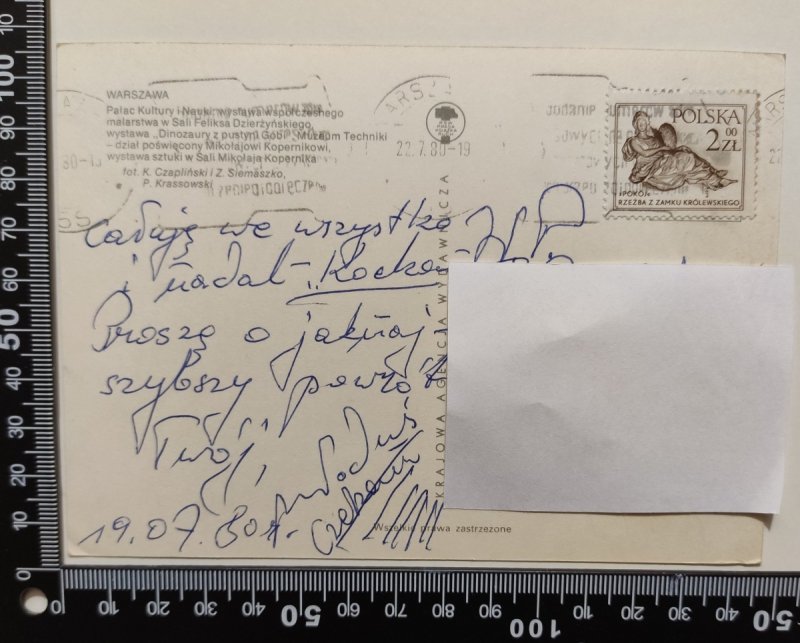 WARSZAWA
Pałac Kultury i Nauki, wystawa współczesnego
malarstwa w Sali Feliksa Dzierżyńskiego,
wystawa „Dinozaury z pustyni Gobi", Muzeum Techniki
– dział poświęcony Mikołajowi Kopernikowi,
wystawa sztuki w Sali Mikołaja Kopernika
fot. K. Czapliński i Z. Siemaszko,
P. Krassowski
22.7.80-19
POLSKA
2 00 ZŁ
»POKÓJ«
RZEŹBA Z ZAMKU KRÓLEWSKIEGO
Całuję we wszystko
i nadal
Proszę o jaknaj-
szybszy powrót
Twój,
19.07.80r.
czekam
KRAJOWA AGENCJA WYDAWNICZA
Wszelkie prawa zastrzeżone
100
90
80
70
60
50
40
30
20
10
0
0
10
20
30
40
50
60
70
80
90
100
10
20
30
40
50